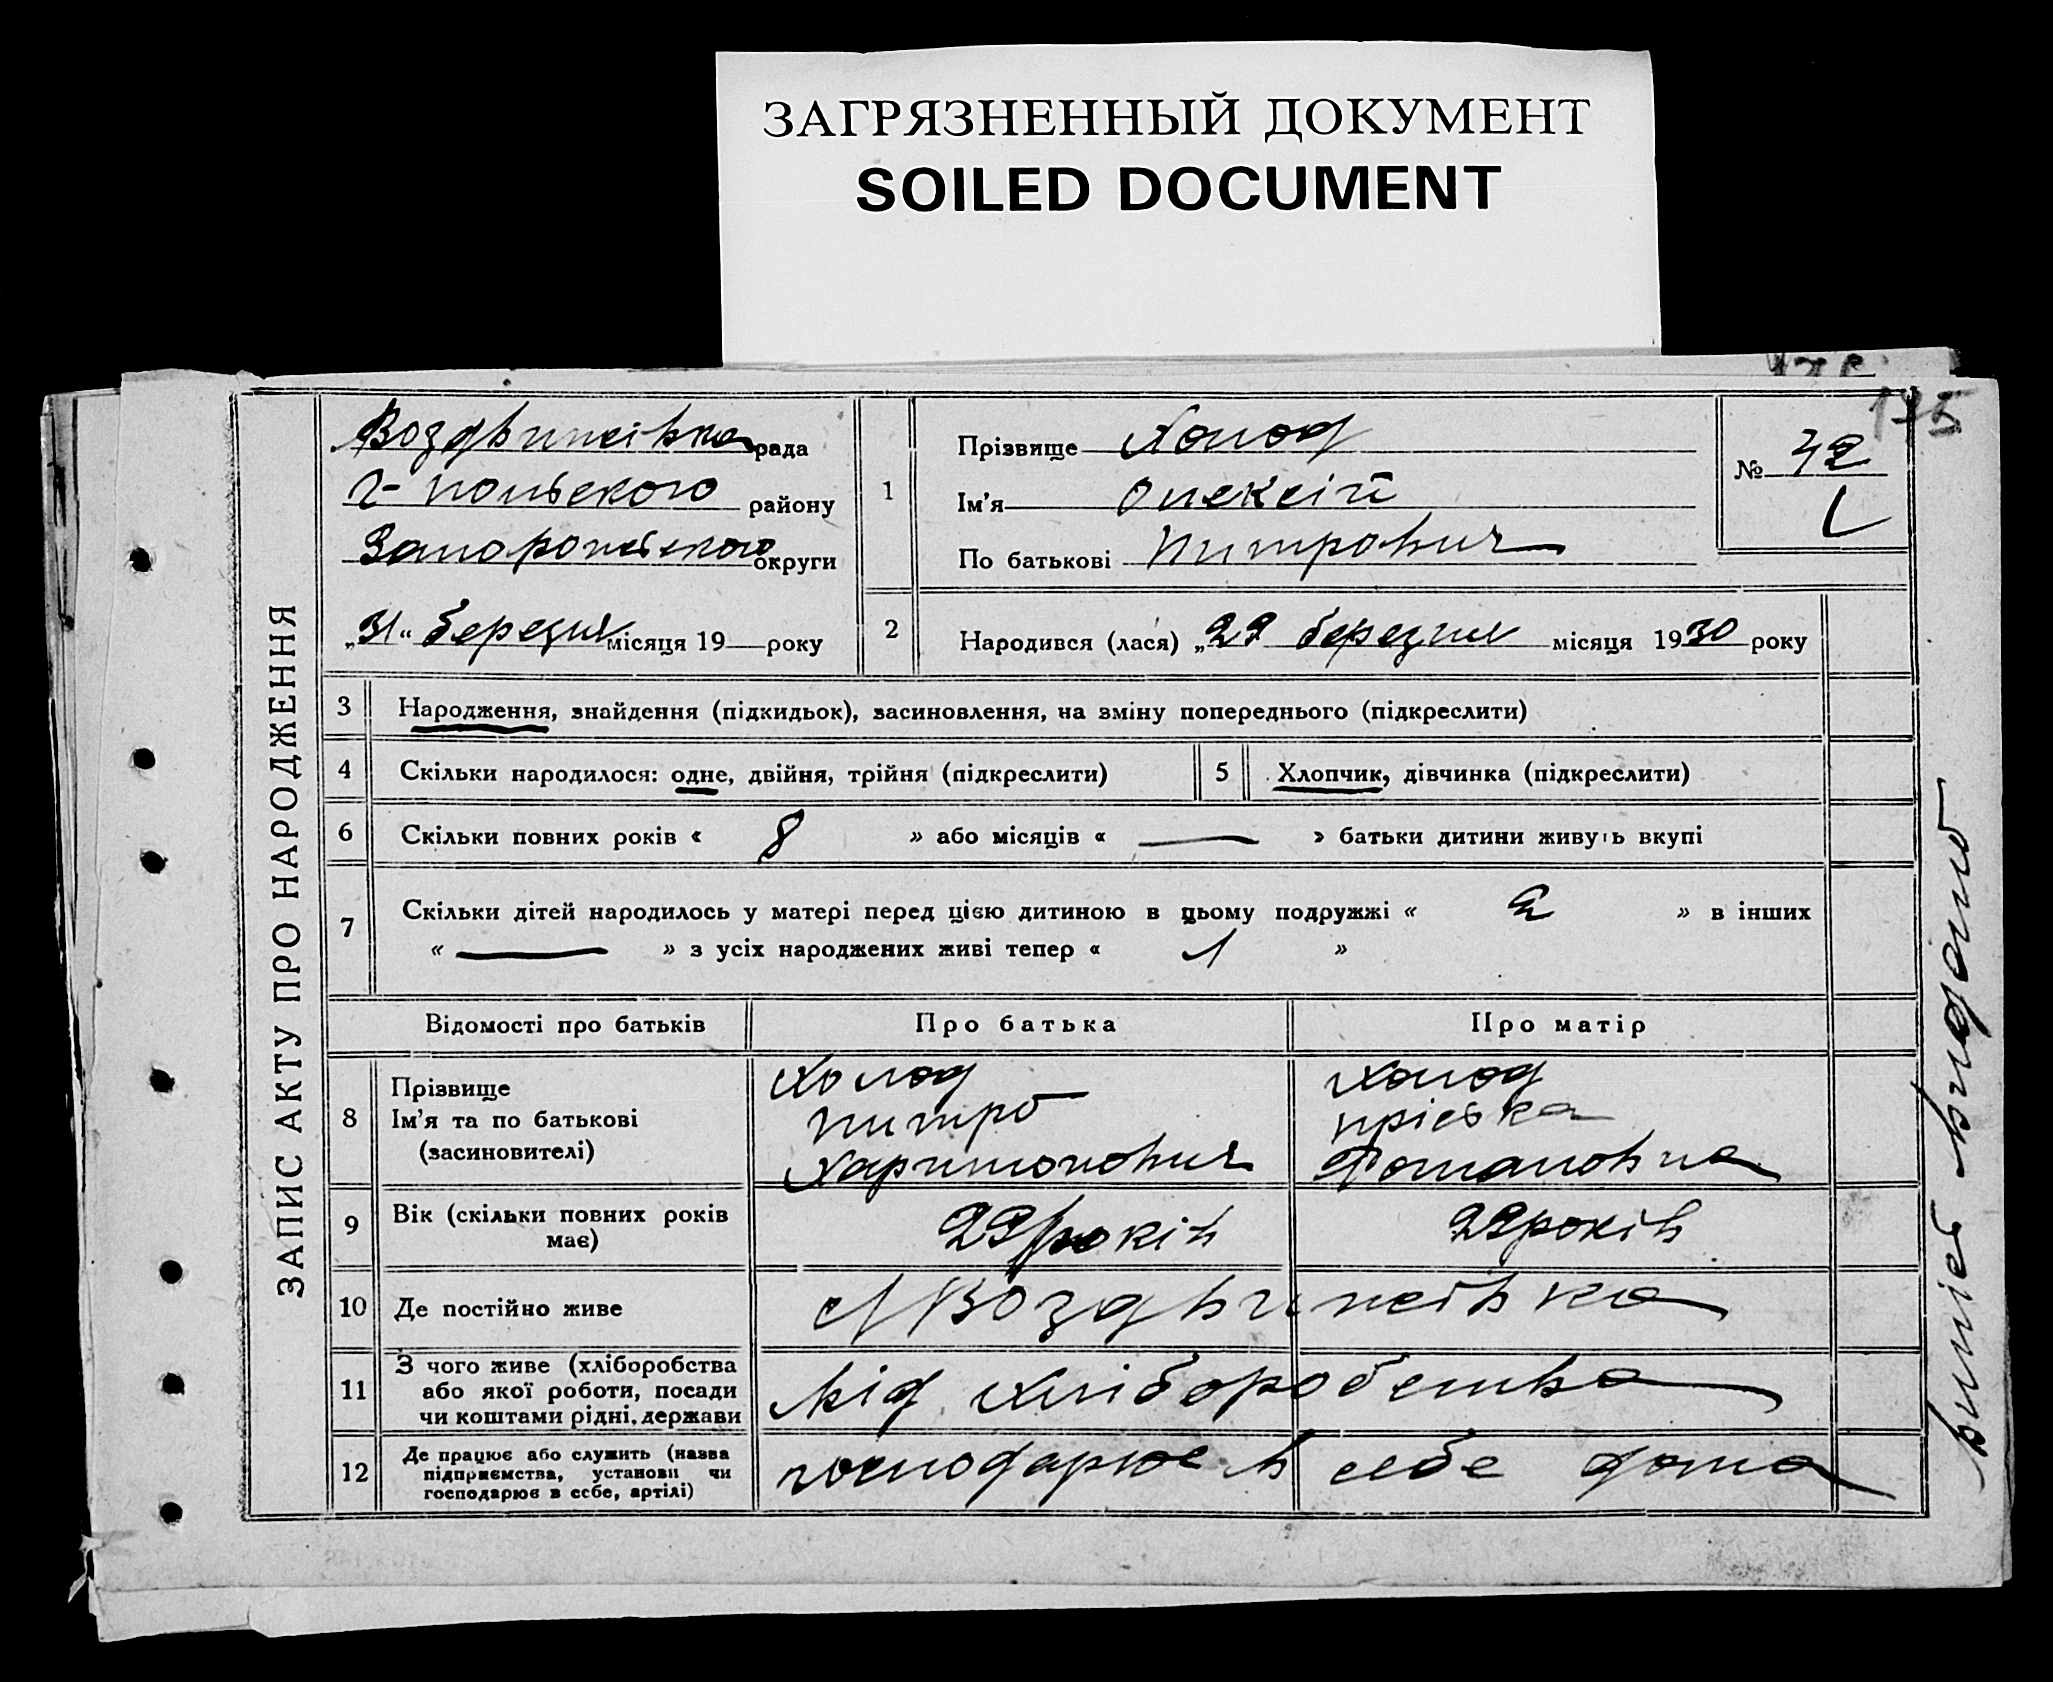 ЗАГРЯЗНЕННЫЙ ДОКУМЕНТ
SOILED DOCUMENT
175
ЗАПИС АКТУ ПРО НАРОДЖЕННЯ
Воздвижівка рада
Г-польского району
Запорожського округи
„31“ березня місяця 19 року
1
Прізвище Холод
Ім'я Олексій
По батькові Питрович
№ 42
2
Народився (лася) „29 березня місяця 1930 року
3 Народження, знайдення (підкидьок), засиновлення, на зміну попереднього (підкреслити)
4 Скільки народилося: одне, двійня, трійня (підкреслити)
5 Хлопчик, дівчинка (підкреслити)
6 Скільки повних років « 8 » або місяців « — » батьки дитини живуть вкупі
7 Скільки дітей народилось у матері перед цією дитиною в цьому подружжі « 2 » в інших
« — » з усіх народжених живі тепер « 1 »
Відомості про батьків
Про батька
Про матір
8
Прізвище
Ім'я та по батькові
(засиновителі)
Холод
Питро
Харитонович
Холод
Пріська
Романовна
9
Вік (скільки повних років
має)
29 років
29 років
10 Де постійно живе
с Воздвижівка
11
З чого живе (хліборобства
або якої роботи, посади
чи коштами рідні, держави
Від хліборобства
12
Де працює або служить (назва
підприємства, установи чи
господарює в себе, артілі)
господарює в себе дома
Випісь видано